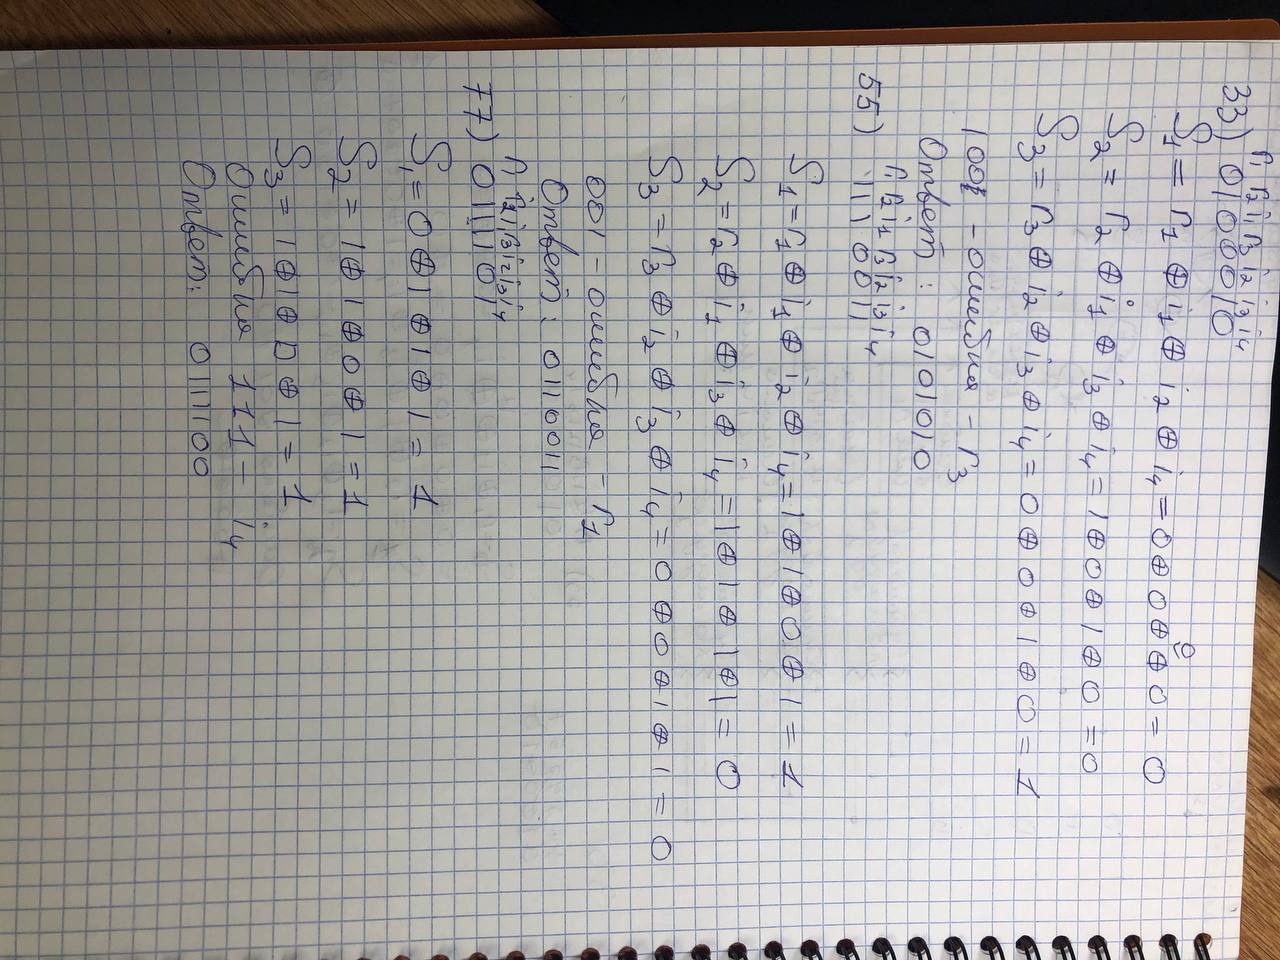 r₁ r₂ i₁ r₃ i₂ i₃ i₄
33) 0100010
S₁ = r₁ ⊕ i₁ ⊕ i₂ ⊕ i₄ = 0 ⊕ 0 ⊕ 0 ⊕ 0 = 0
S₂ = r₂ ⊕ i₁ ⊕ i₃ ⊕ i₄ = 1 ⊕ 0 ⊕ 1 ⊕ 0 = 0
S₃ = r₃ ⊕ i₂ ⊕ i₃ ⊕ i₄ = 0 ⊕ 0 ⊕ 1 ⊕ 0 = 1
100 - ошибка - r₃
Ответ: 0101010
55) r₁ r₂ i₁ r₃ i₂ i₃ i₄
1110011
S₁ = r₁ ⊕ i₁ ⊕ i₂ ⊕ i₄ = 1 ⊕ 1 ⊕ 0 ⊕ 1 = 1
S₂ = r₂ ⊕ i₁ ⊕ i₃ ⊕ i₄ = 1 ⊕ 1 ⊕ 1 ⊕ 1 = 0
S₃ = r₃ ⊕ i₂ ⊕ i₃ ⊕ i₄ = 0 ⊕ 0 ⊕ 1 ⊕ 1 = 0
001 - ошибка - r₁
Ответ: 0110011
r₁ r₂ i₁ r₃ i₂ i₃ i₄
77) 0111101
S₁ = 0 ⊕ 1 ⊕ 1 ⊕ 1 = 1
S₂ = 1 ⊕ 1 ⊕ 0 ⊕ 1 = 1
S₃ = 1 ⊕ 1 ⊕ 0 ⊕ 1 = 1
Ошибка 111 - i₄
Ответ: 0111100